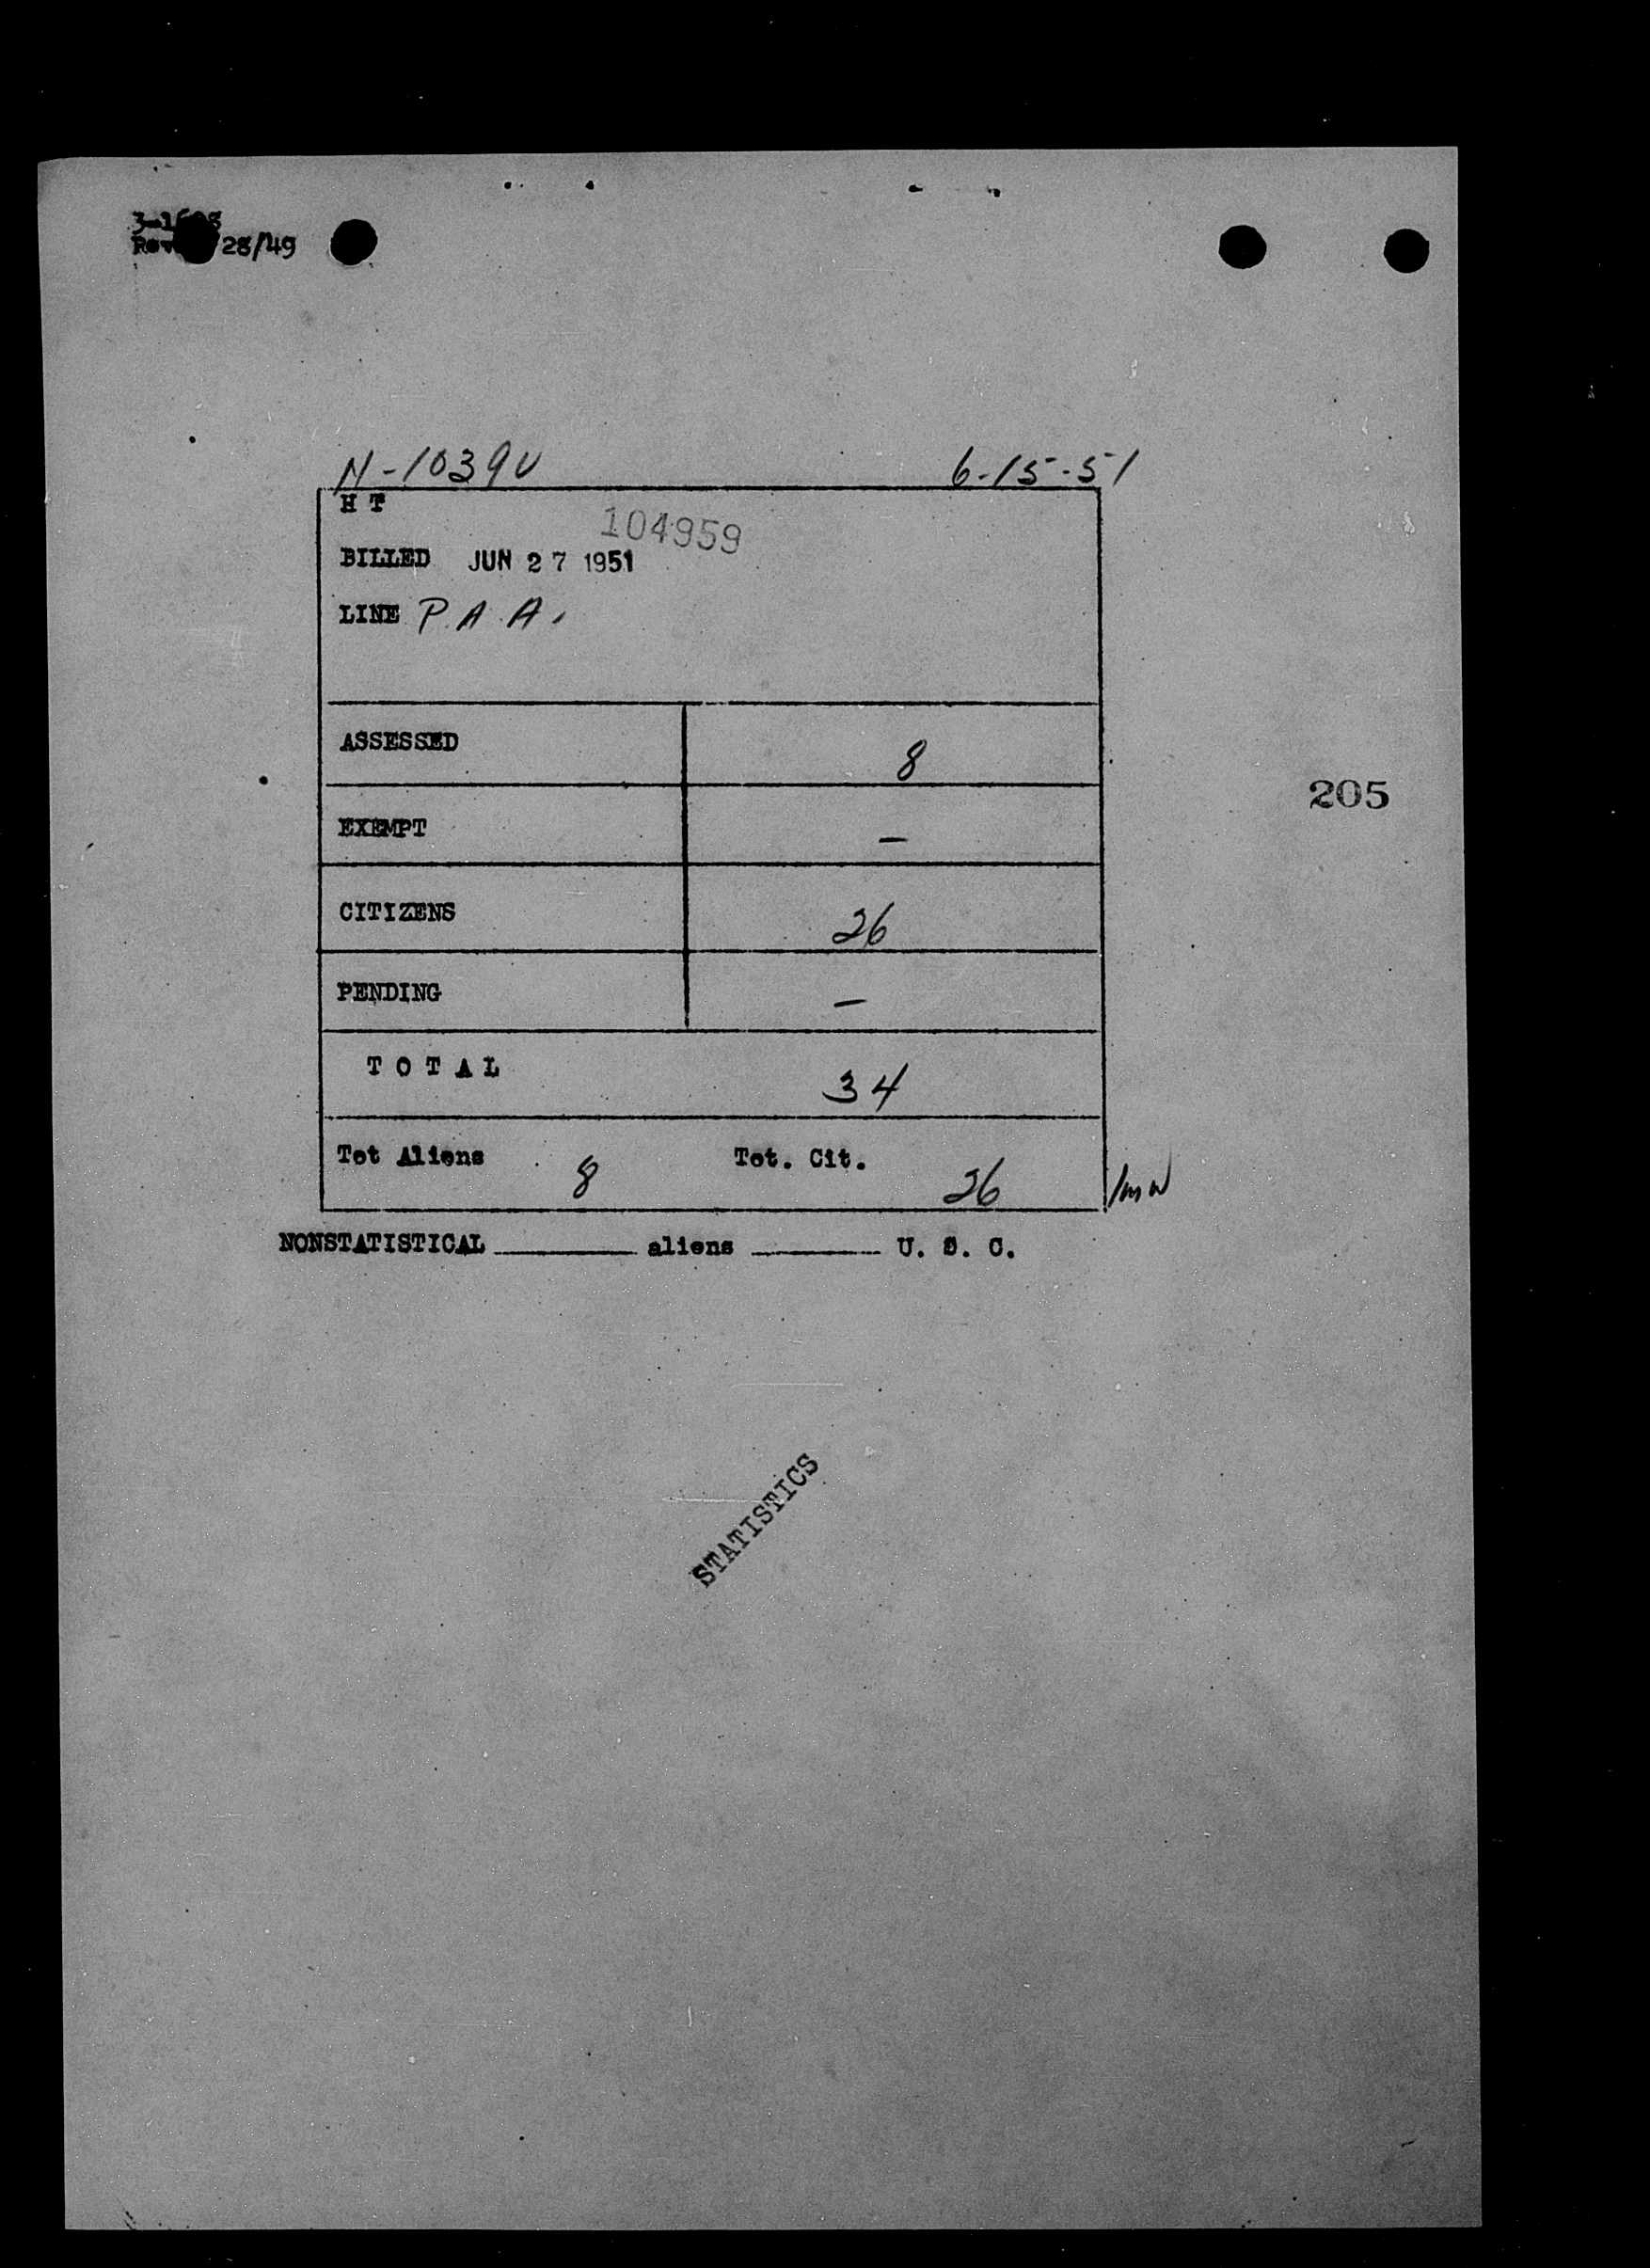 28/49
N-1039V 6-15-51
H T
104959
BILLED JUN 27 1951
LINE P.A.A.
ASSESSED 8
205
EXEMPT –
CITIZENS 26
PENDING –
TOTAL 34
Tot Aliens 8 Tot. Cit. 26
/mw
NONSTATISTICAL ________ aliens ________ U. S. C.
STATISTICS